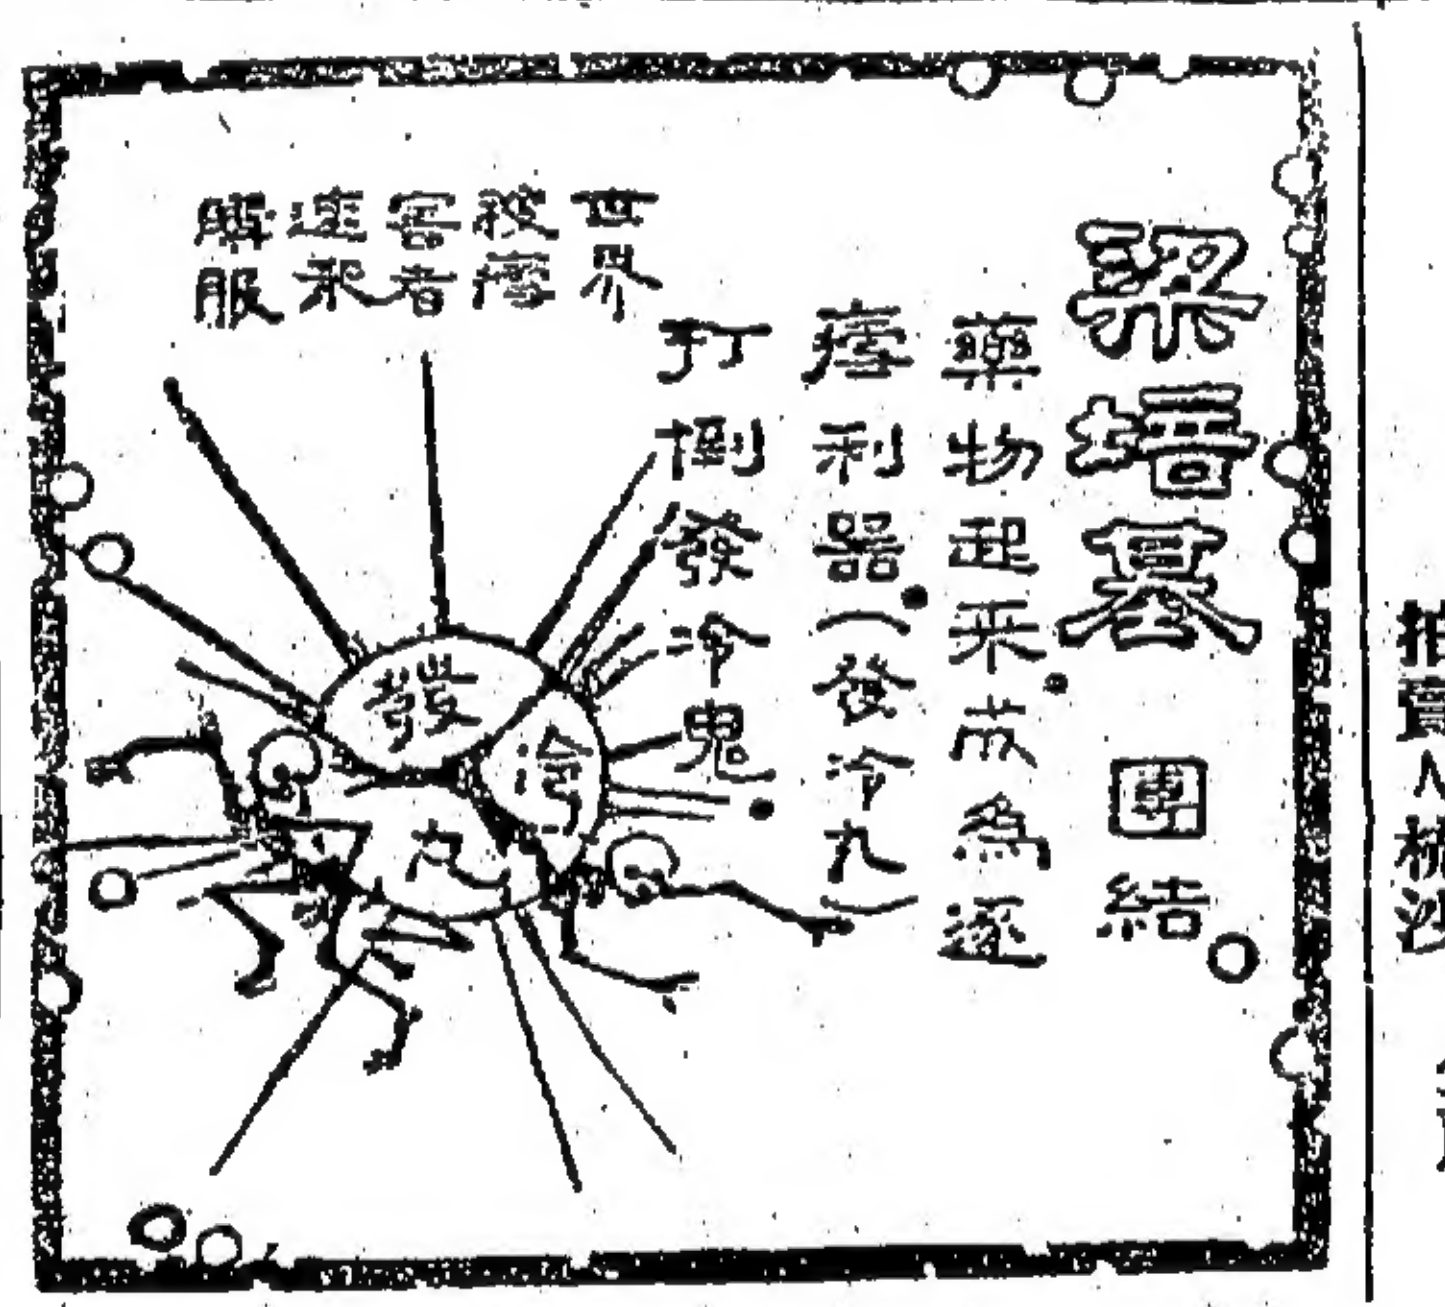 梁培基 團結
藥物起來成為逐
瘧利器（發冷丸）
打倒發冷鬼
世界
被瘧
害者
速來
購服
發
冷
丸